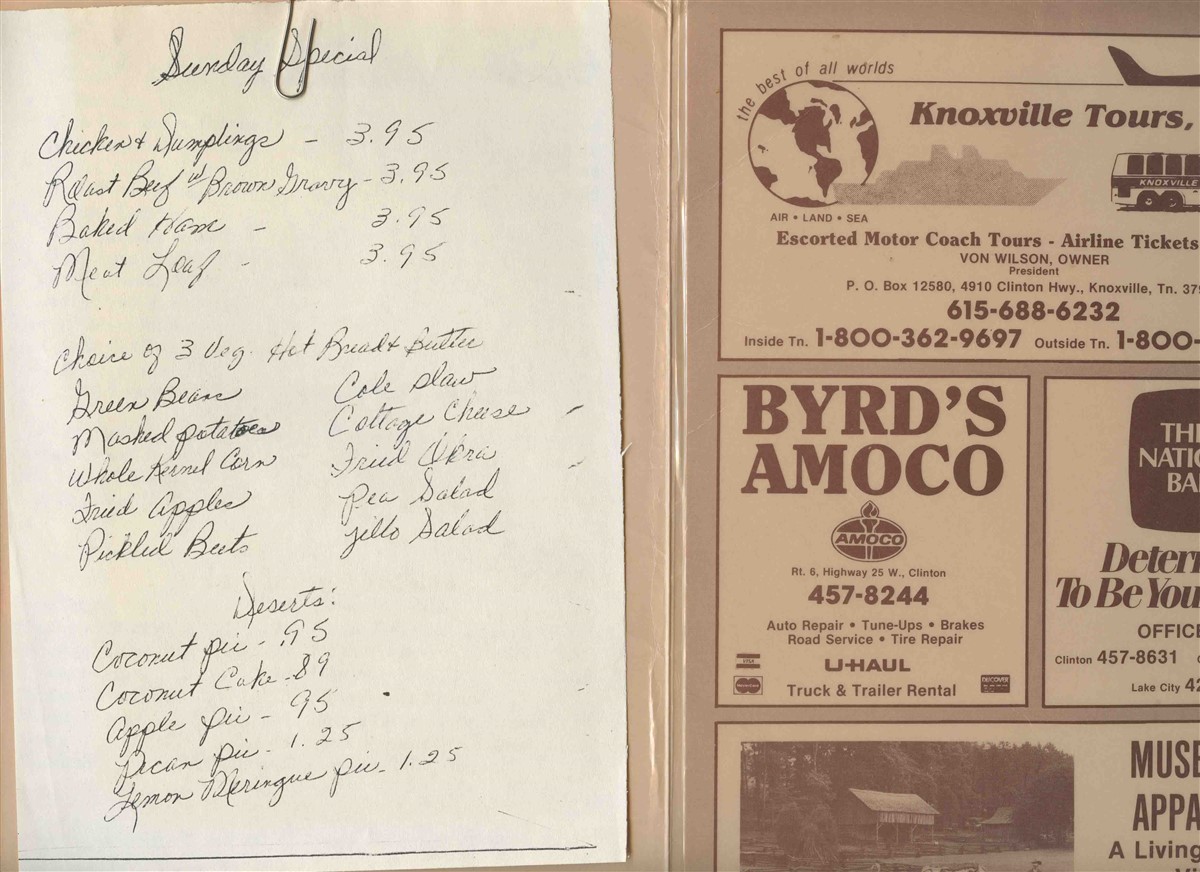 Sunday Special
Chicken & Dumplings - 3.95
Roast Beef w/ Brown Gravy - 3.95
Baked Ham - 3.95
Meat Loaf - 3.95
Choice of 3 Veg. Hot Bread & Butter
Green Beans Cole Slaw
Mashed potatoes Cottage Cheese
Whole Kernel Corn Fried Okra
Fried Apples Pea Salad
Pickled Beets Jello Salad
Deserts:
Coconut pie - .95
Coconut Cake - 89
Apple pie - 95
Pecan pie - 1.25
Lemon Meringue pie - 1.25
the best of all worlds
Knoxville Tours,
KNOXVILLE
AIR • LAND • SEA
Escorted Motor Coach Tours - Airline Tickets
VON WILSON, OWNER
President
P. O. Box 12580, 4910 Clinton Hwy., Knoxville, Tn. 379
615-688-6232
Inside Tn. 1-800-362-9697 Outside Tn. 1-800-
BYRD'S
AMOCO
AMOCO
Rt. 6, Highway 25 W., Clinton
457-8244
Auto Repair • Tune-Ups • Brakes
Road Service • Tire Repair
U-HAUL
VISA
MasterCard
DISCOVER
Truck & Trailer Rental
THE
NATIO
BA
Deter
To Be You
OFFICE
Clinton 457-8631
Lake City 42
MUSE
APPA
A Living